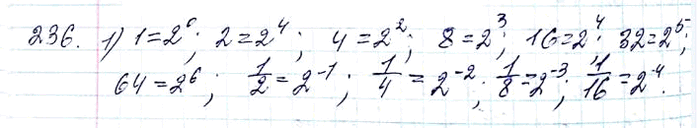 236. 1) 1=2⁰; 2=2⁴; 4=2²; 8=2³; 16=2⁴; 32=2⁵;
64=2⁶; 1/2=2⁻¹; 1/4=2⁻²; 1/8=2⁻³; 1/16=2⁻⁴.